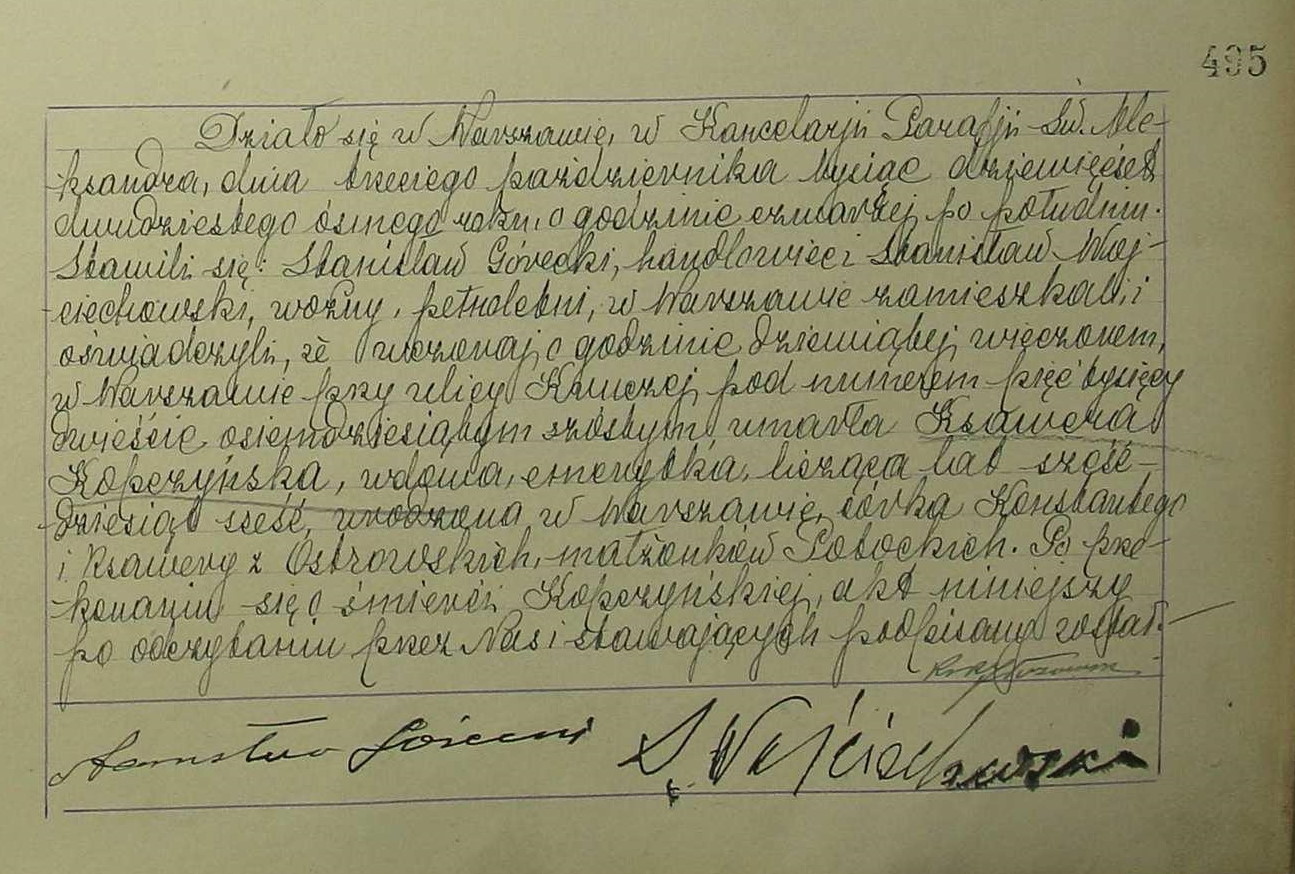 495
Działo się w Warszawie, w Kancelarji Parafji Św. Ale-
ksandra, dnia trzeciego października tysiąc dziewięćset
dwudziestego ósmego roku, o godzinie czwartej po południu.
Stawili się: Stanisław Górecki, handlowiec i Stanisław Woj-
ciechowski, woźny, pełnoletni, w Warszawie zamieszkali, i
oświadczyli, że wczoraj o godzinie dziewiątej wieczorem,
w Warszawie przy ulicy Kruczej pod numerem pięć tysięcy
dwieście osiemdziesiątym szóstym, umarła Ksawera
Kopczyńska, wdowa, emerytka, licząca lat sześć-
dziesiąt sześć, urodzona w Warszawie, córka Konstantego
i Ksawery z Ostrowskich, małżonków Potockich. Po prze-
konaniu się o śmierci Kopczyńskiej, akt niniejszy
po odczytaniu przez Nas i stawających podpisany został.
Stanisław Górecki S. Wojciechowski